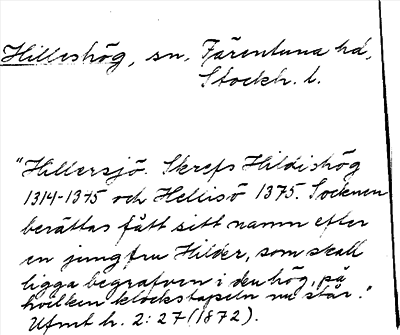 Hilleshög, sn, Färentuna hd,
Stockh. l.
"Hillersjö. Skrefs Hildishög
1314-1375 och Hellisö 1375. Socknen
berättas fått sitt namn efter
en jungfru Hilder, som skall
ligga begrafven i den hög, på
hvilken klockstapeln nu står."
Ufmt h. 2: 27 (1872).